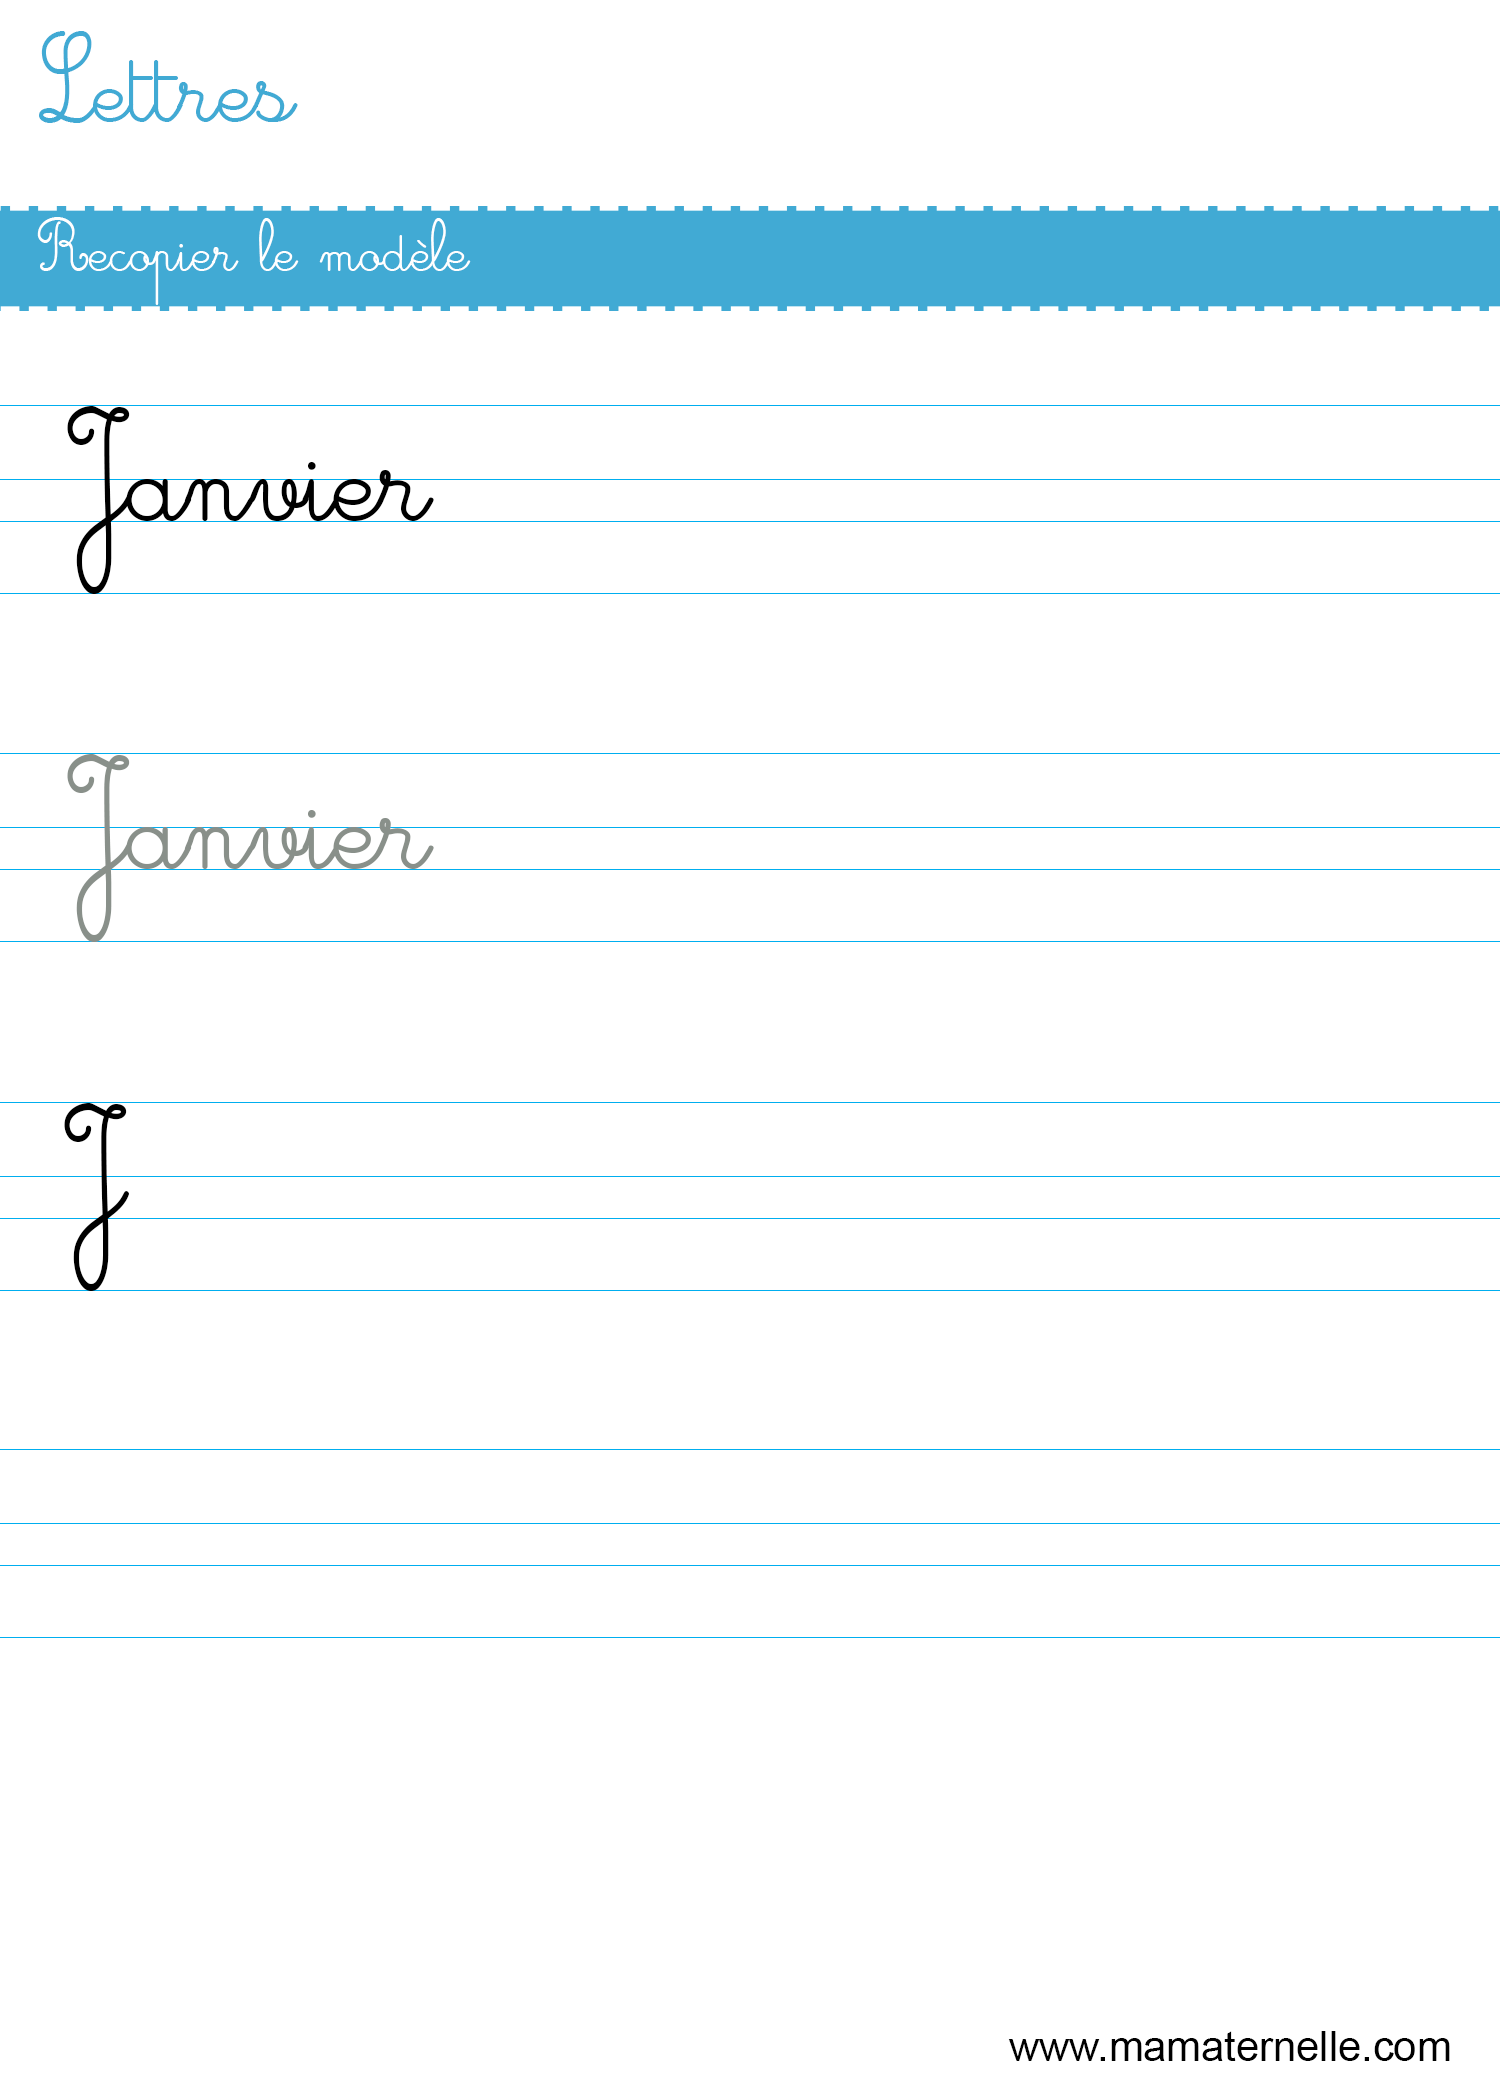 Lettres
Recopier le modèle
Janvier
Janvier
J
www.mamaternelle.com